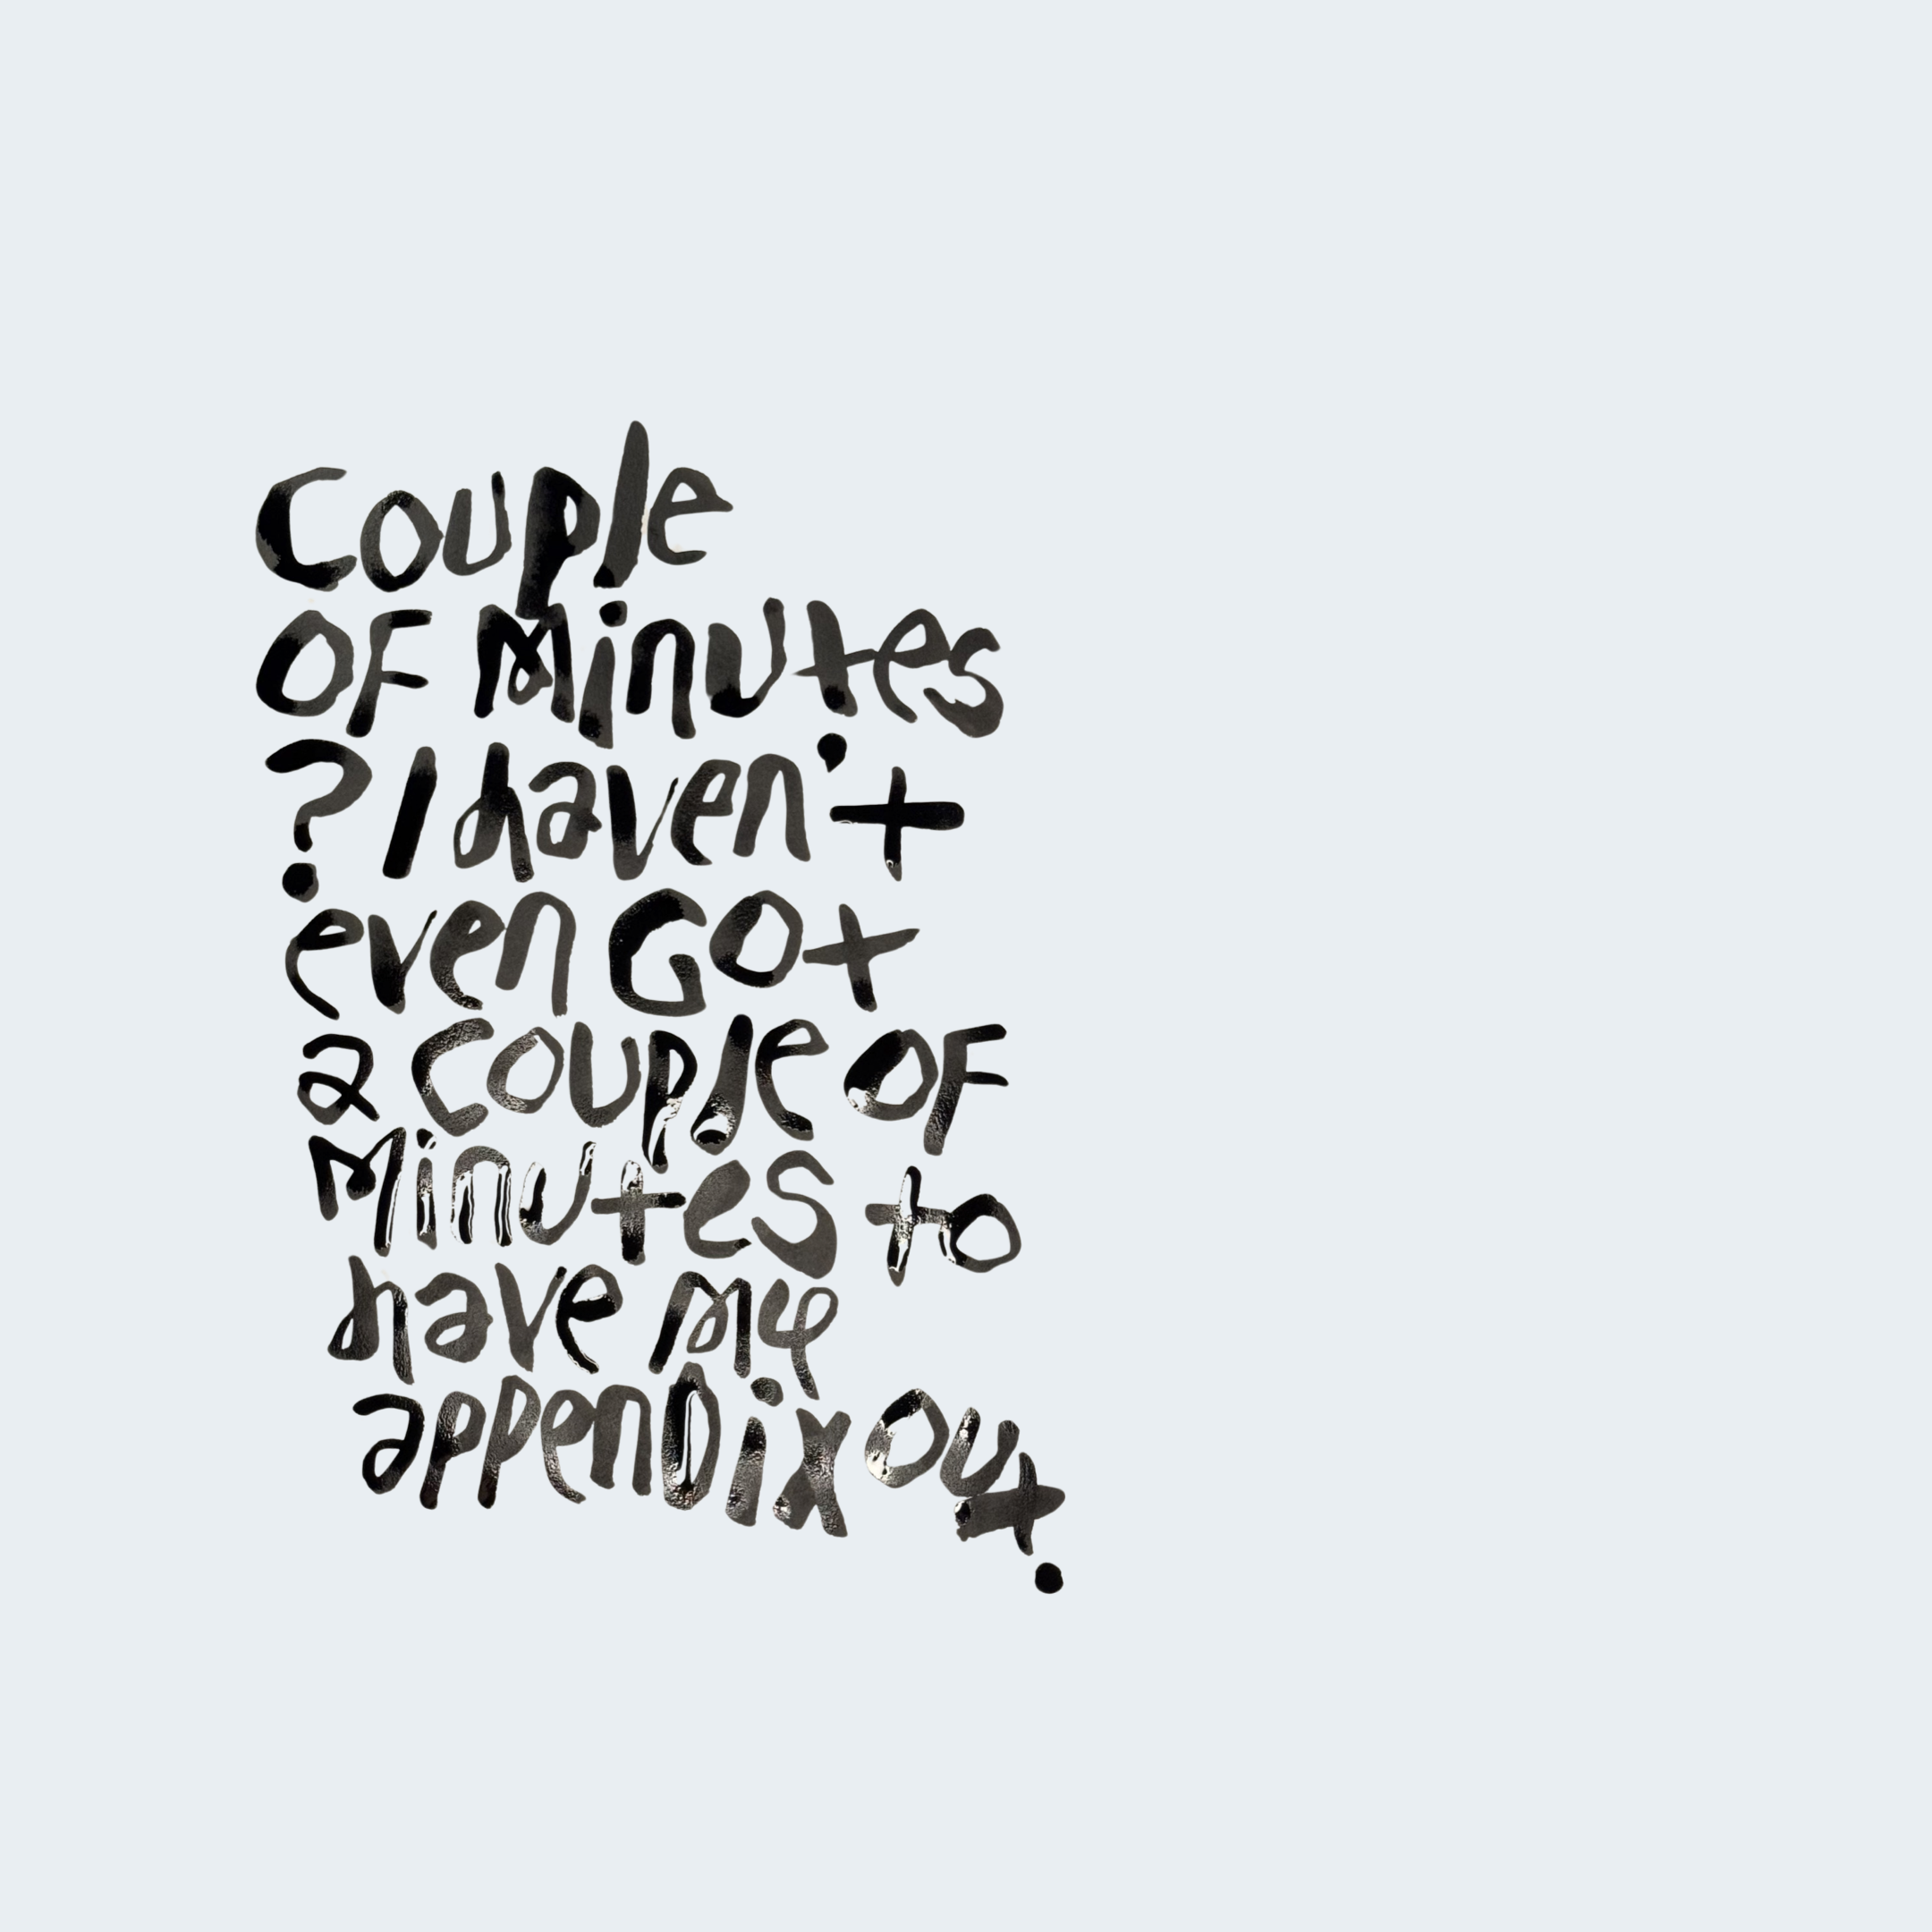 Couple
OF Minutes
? I haven't
even Got
a couple OF
Minutes to
have my
appenDix out.